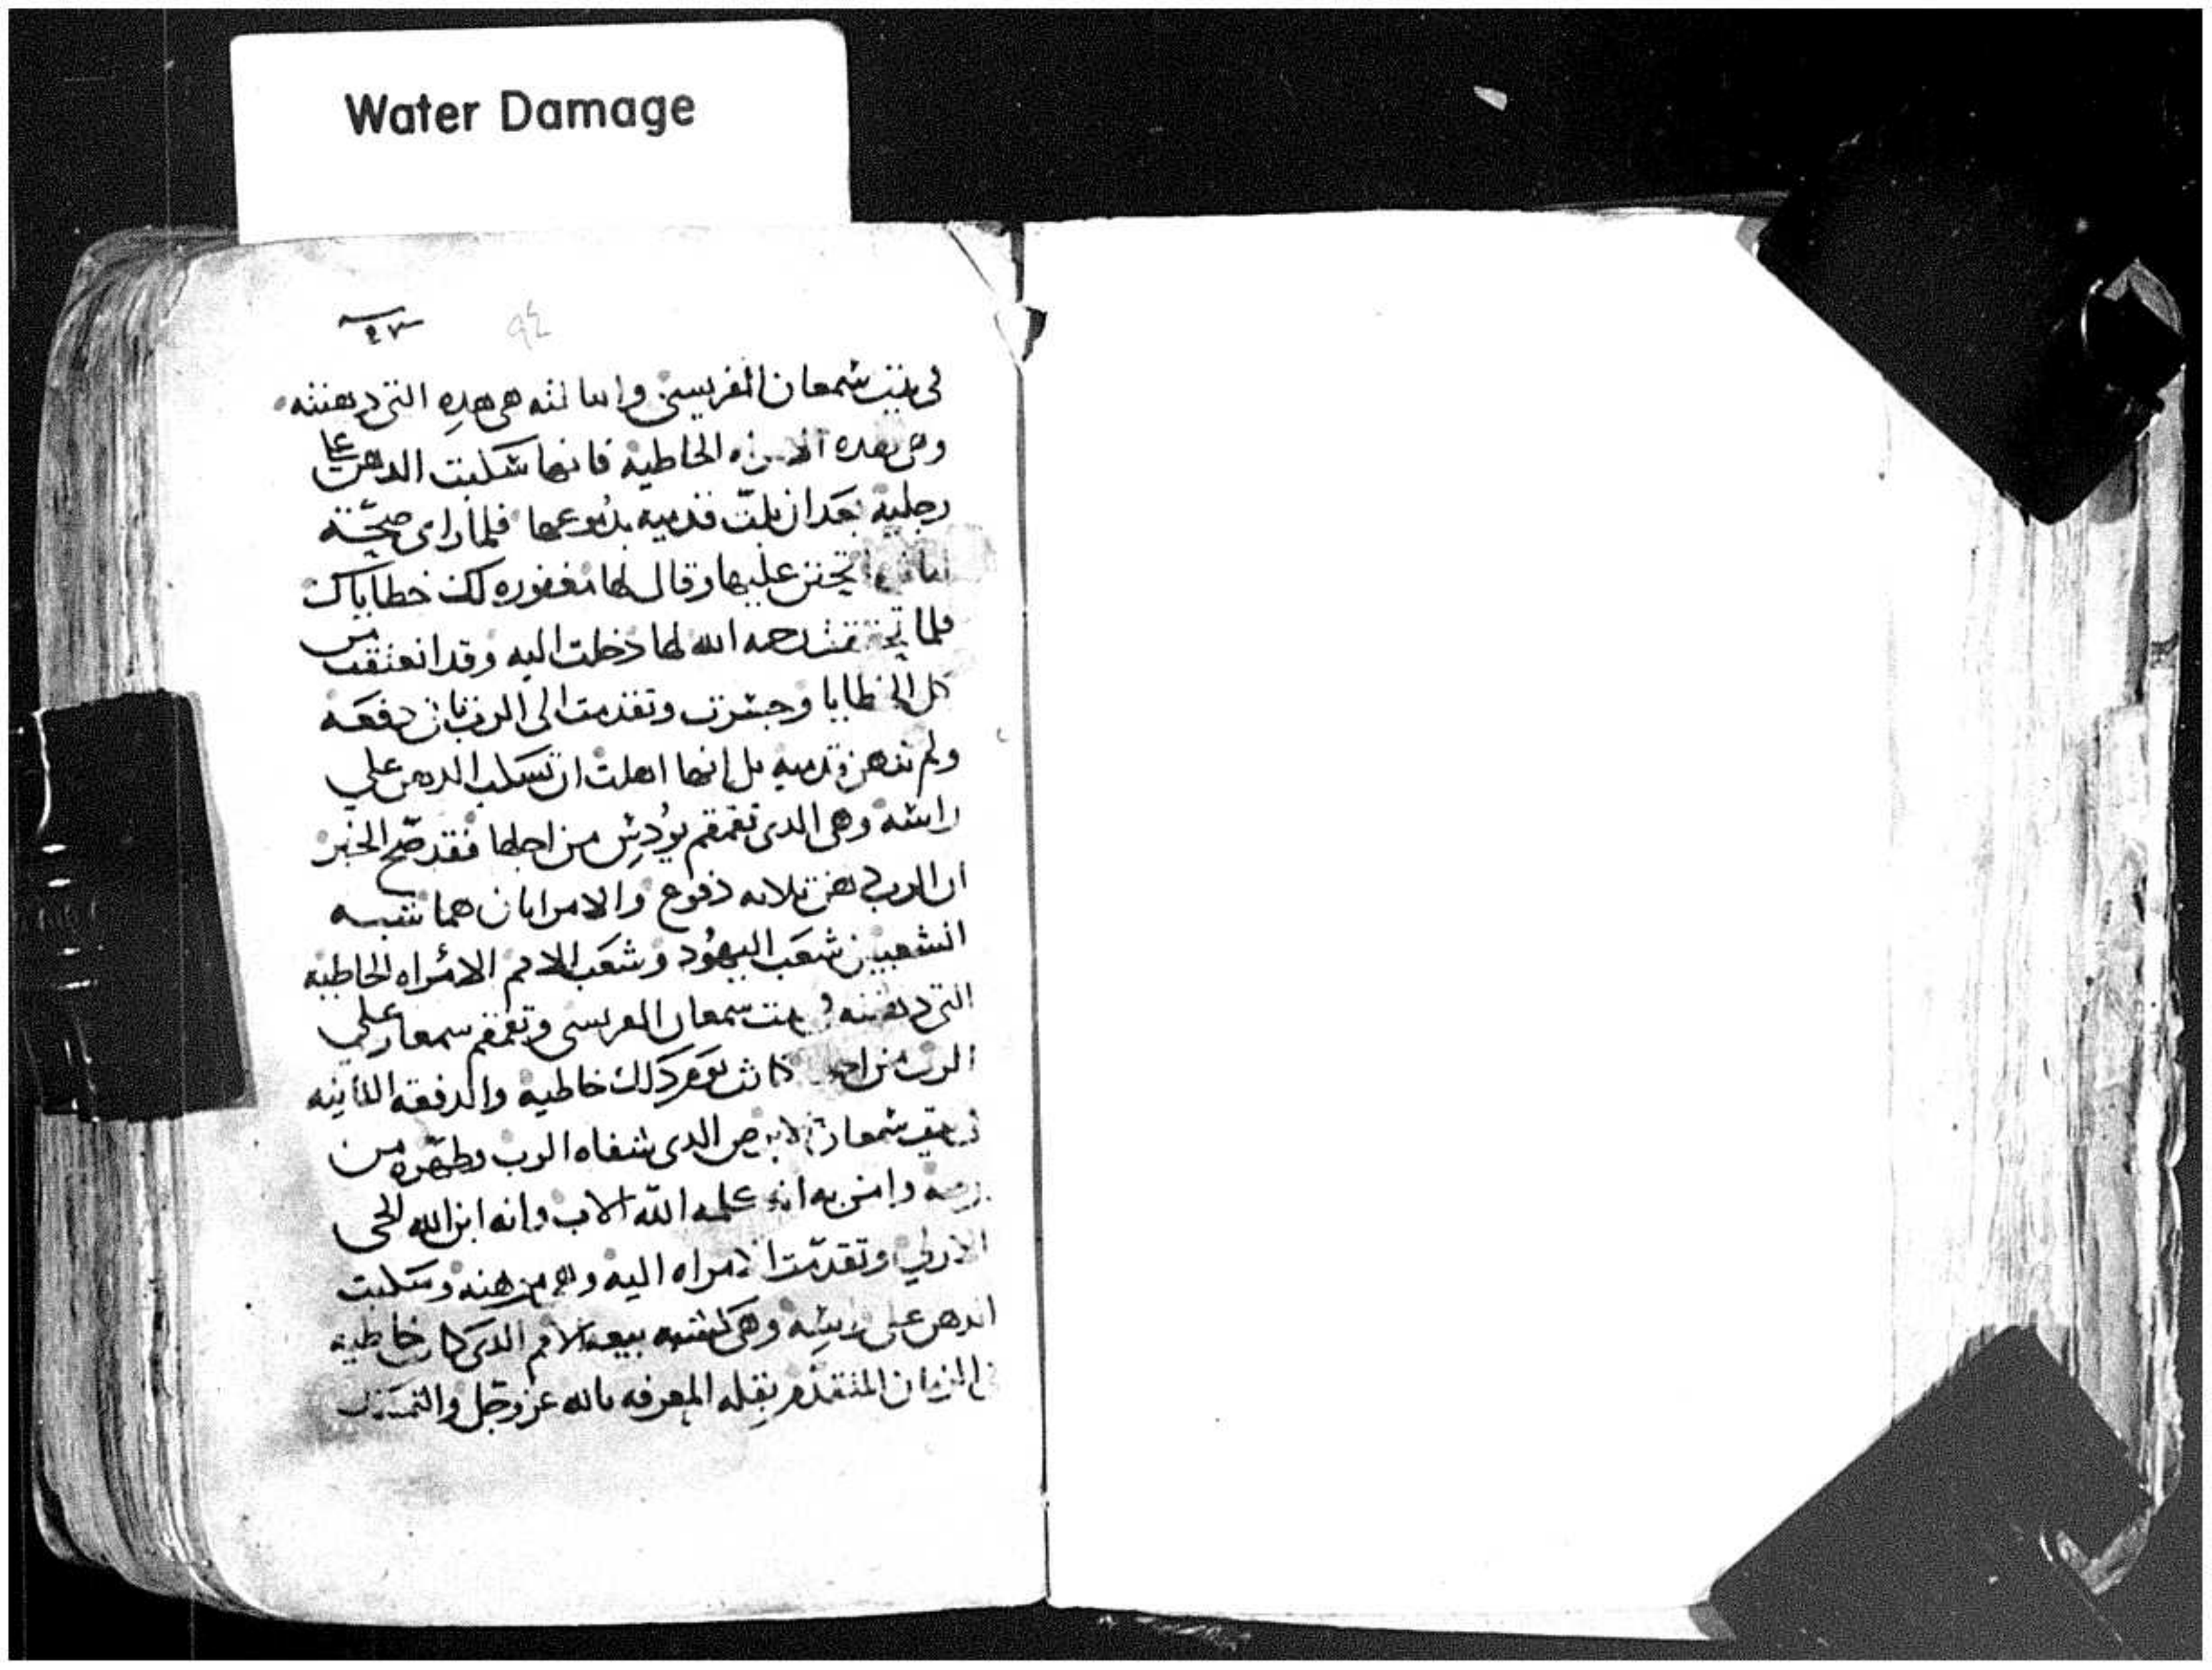 Water Damage
٩٤
في بيت شمعان الفريسي والثالثه هي هده التي دهنته
وهي بهده الامراه الخاطيه فانها سكبت الدهن على
رجليه بعد ان بلت قدميه بدموعها فلما راى صحّة
تحنن عليها وقال لها مغفوره لك خطاياك
فلما تحققت رحمه الله لها دخلت اليه وقد انعتقت من
كل الخطايا وجسرت وتقدمت الى الرب ثاني دفعَه
ولم تدهن قدميه بل انها اهلت ان تسكب الدهن علي
راسه وهي الدى تقمقم يودس من اجلها فقد صّح الخبر
ان الرب دهن تلاته دفوع والامراتان هما شبه
الشعبين شعَب اليهُود وشعَب الامم الامراه الخاطيه
التي دهنته في بيت سمعان الفريسي وتقمقم سمعان علي
الرب من اجل كانت تعرف كذلك خاطيه والدفعه الثانيه
في بيت شمعان الابرص الدى شفاه الرب وطهّره من
برصه وامن به انه كلمه اللّه الاب وانه ابن الله الحي
الازلي وتقدّمت الامراه اليه وسكبت
الدهن على راسه وهي تشبه بيعة الامم الدى كانت خاطيه
في الزمان المتقدّم بقله المعرفه بالله عز وجّل